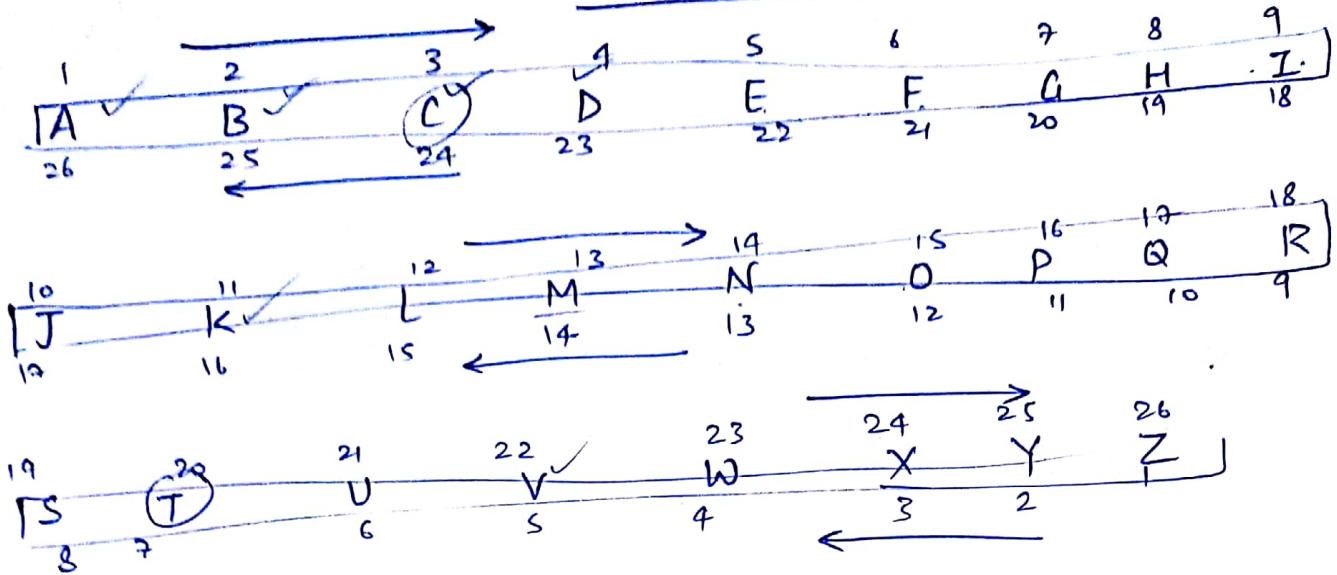 1 2 3 4 5 6 7 8 9
A B C D E F G H I
26 25 24 23 22 21 20 19 18
10 11 12 13 14 15 16 17 18
J K L M N O P Q R
17 16 15 14 13 12 11 10 9
19 20 21 22 23 24 25 26
S T U V W X Y Z
8 7 6 5 4 3 2 1